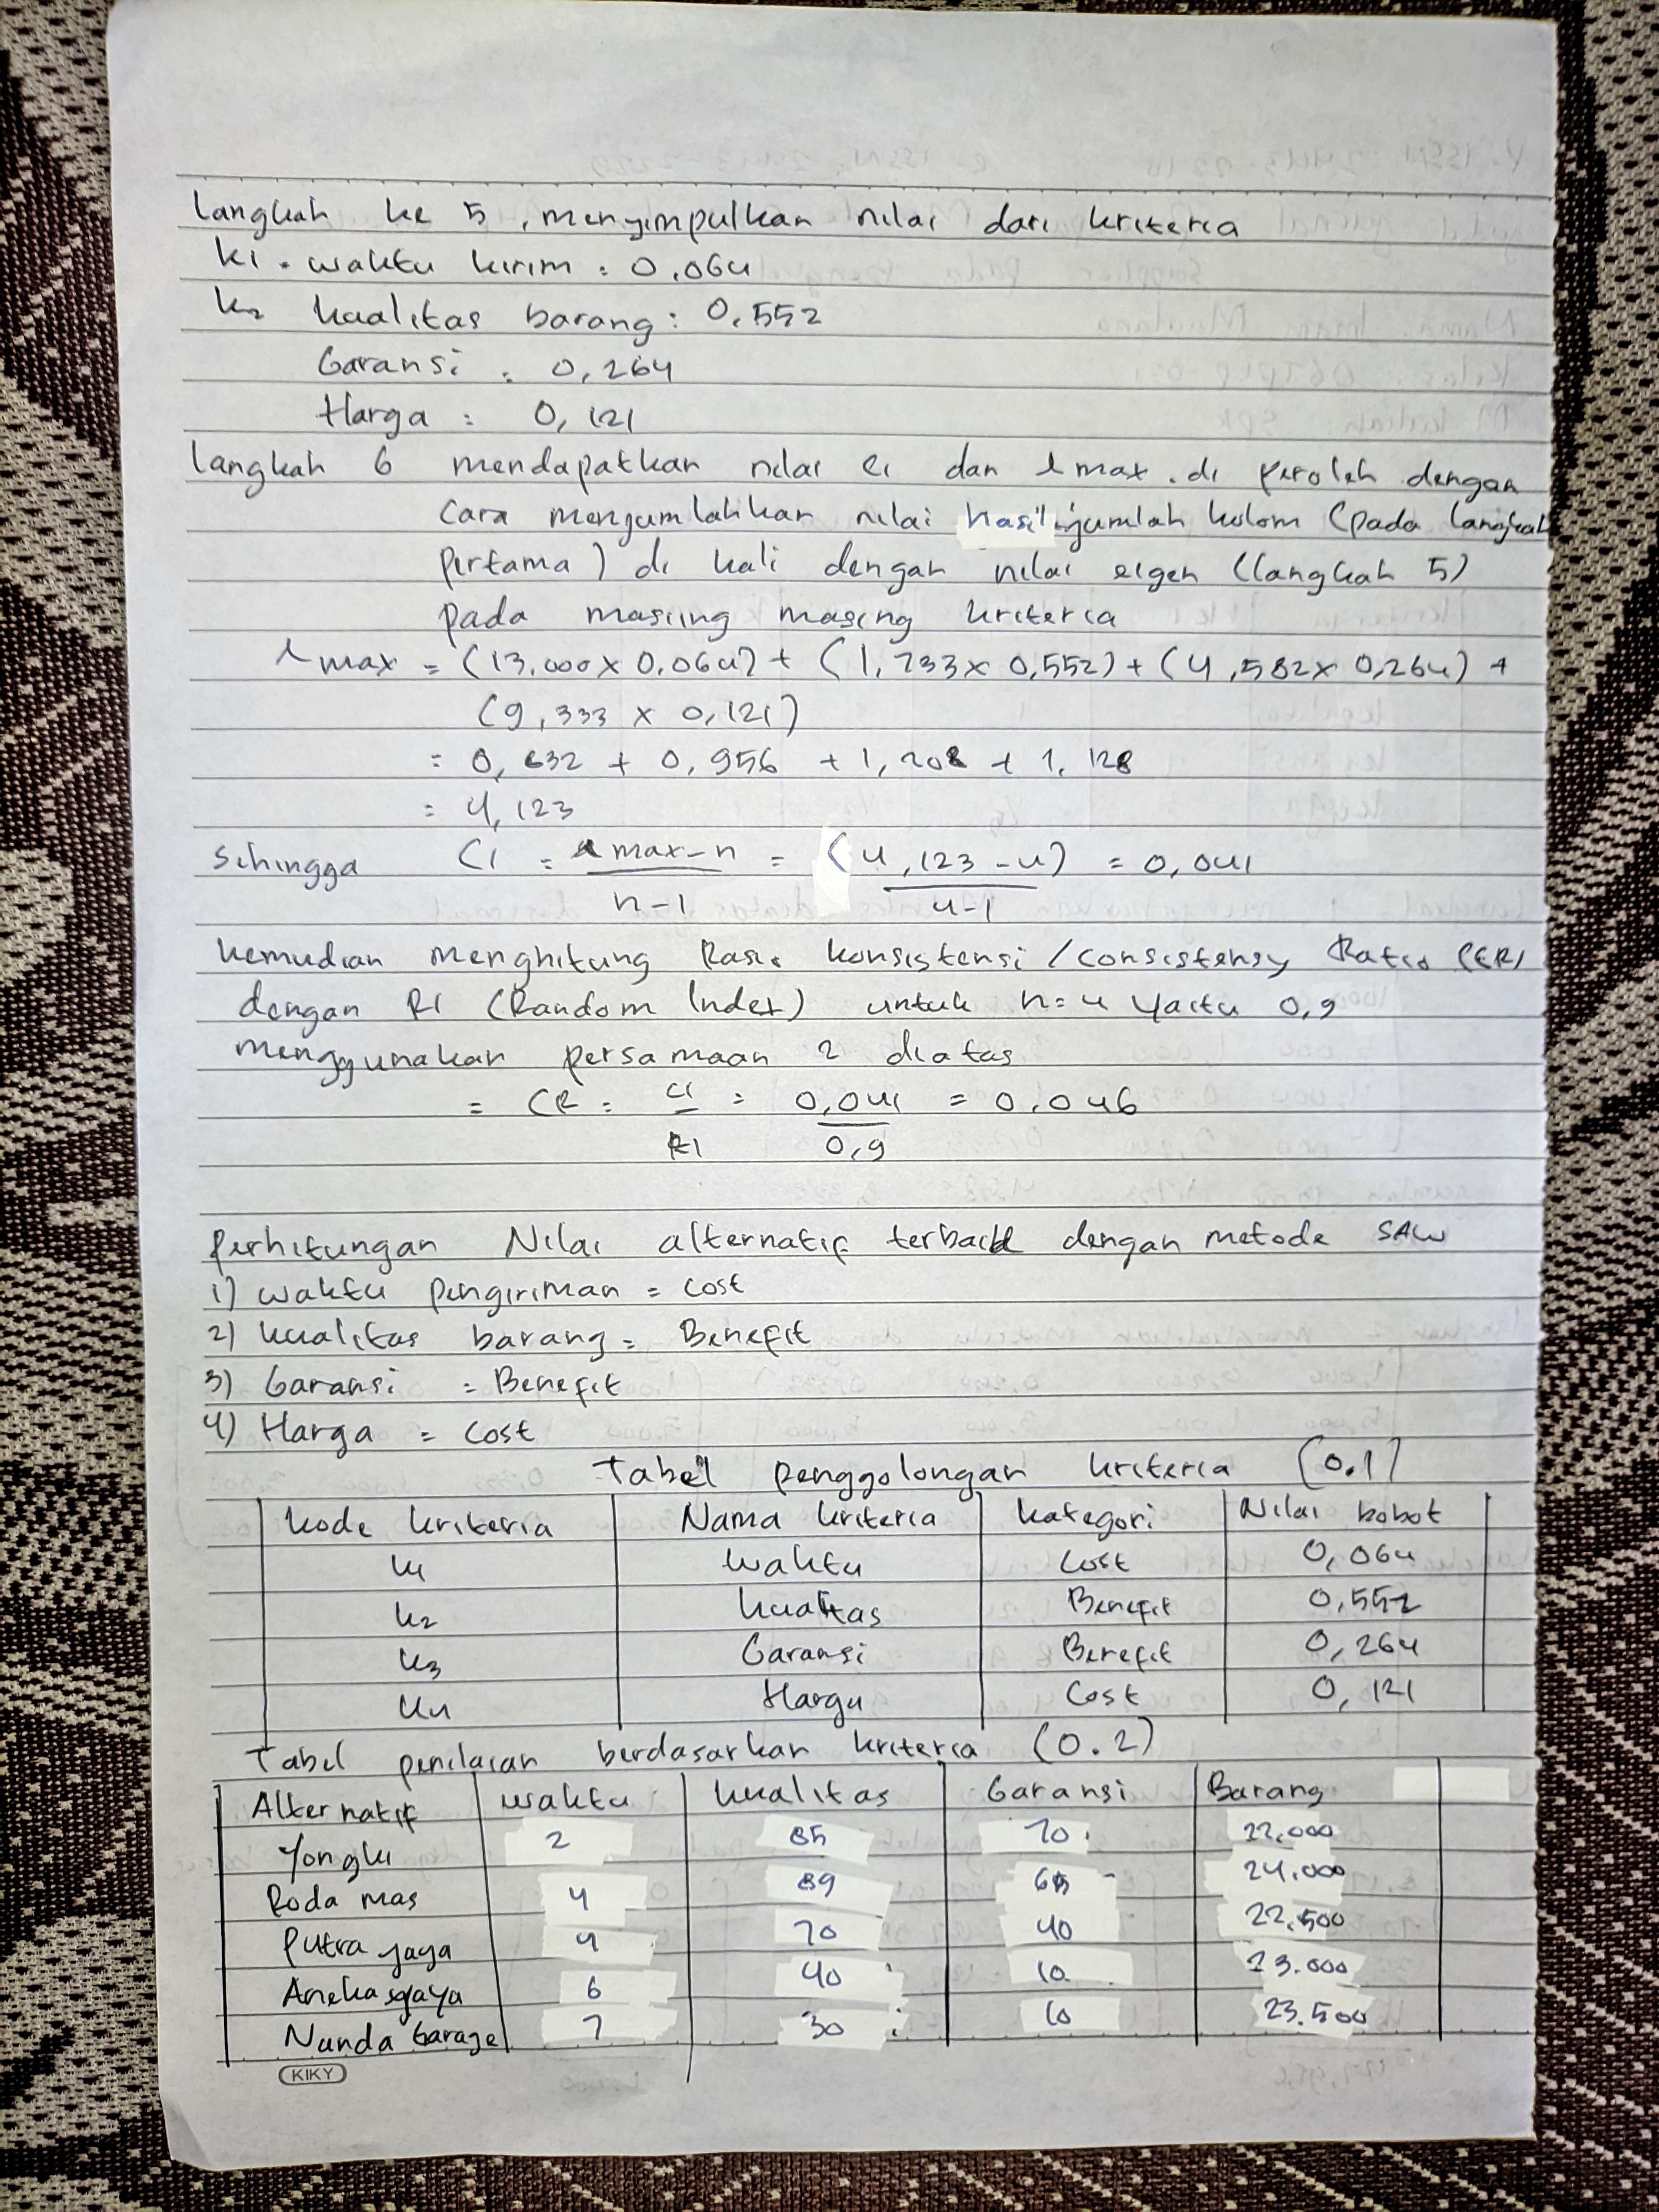 Langkah ke 5, menyimpulkan nilai dari kriteria
K1. waktu kirim : 0,064
K2 kualitas barang : 0,552
Garansi : 0,264
Harga : 0,121
Langkah 6 mendapatkan nilai ci dan λ max. di peroleh dengan
cara menjumlahkan nilai hasil jumlah kolom (pada langkah
pertama) di kali dengan nilai eigen (langkah 5)
pada masiing masing kriteria
λ max = (13.000 x 0.064) + (1,733 x 0,552) + (4,582 x 0,264) +
(9,333 x 0,121)
= 0,832 + 0,956 + 1,208 + 1,128
= 4,123
Sehingga CI = λ max - n / n-1 = (4,123 - 4) / 4-1 = 0,041
kemudian menghitung Rasio konsistensi / consistensy Ratio (CR)
dengan RI (Random Index) untuk n = 4 yaitu 0,9
menggunakan persamaan 2 diatas
= CR = CI / RI = 0,041 / 0,9 = 0,046
Perhitungan Nilai alternatif terbaik dengan metode SAW
1) waktu pengiriman = cost
2) kualitas barang = Benefit
3) Garansi = Benefit
4) Harga = cost
Tabel penggolongan kriteria (0.1)
Kode kriteria Nama kriteria kategori Nilai bobot
K1 waktu Cost 0,064
K2 kualitas Benefit 0,552
K3 Garansi Benefit 0,264
K4 Harga Cost 0,121
Tabel penilaian berdasarkan kriteria (0.2)
Alternatif waktu kualitas Garansi Barang
Yongki 2 85 70 22.000
Roda mas 4 89 65 24.000
Putra jaya 4 70 40 22.500
Aneka jaya 6 40 10 23.000
Nanda Garage 7 30 10 23.500
KIKY